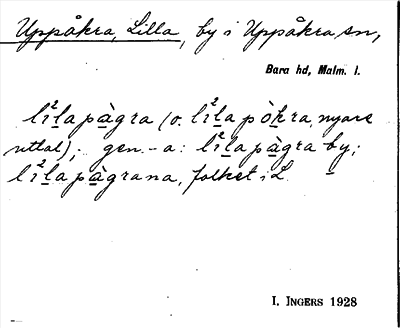 Uppåkra, Lilla, by i Uppåkra sn,
Bara hd, Malm. l.
li²lapàgra (o. li²lapòkra, nyare
uttal); gen. -a: li²lapàgra by;
li²lapàgrana, folket i L.
I. INGERS 1928